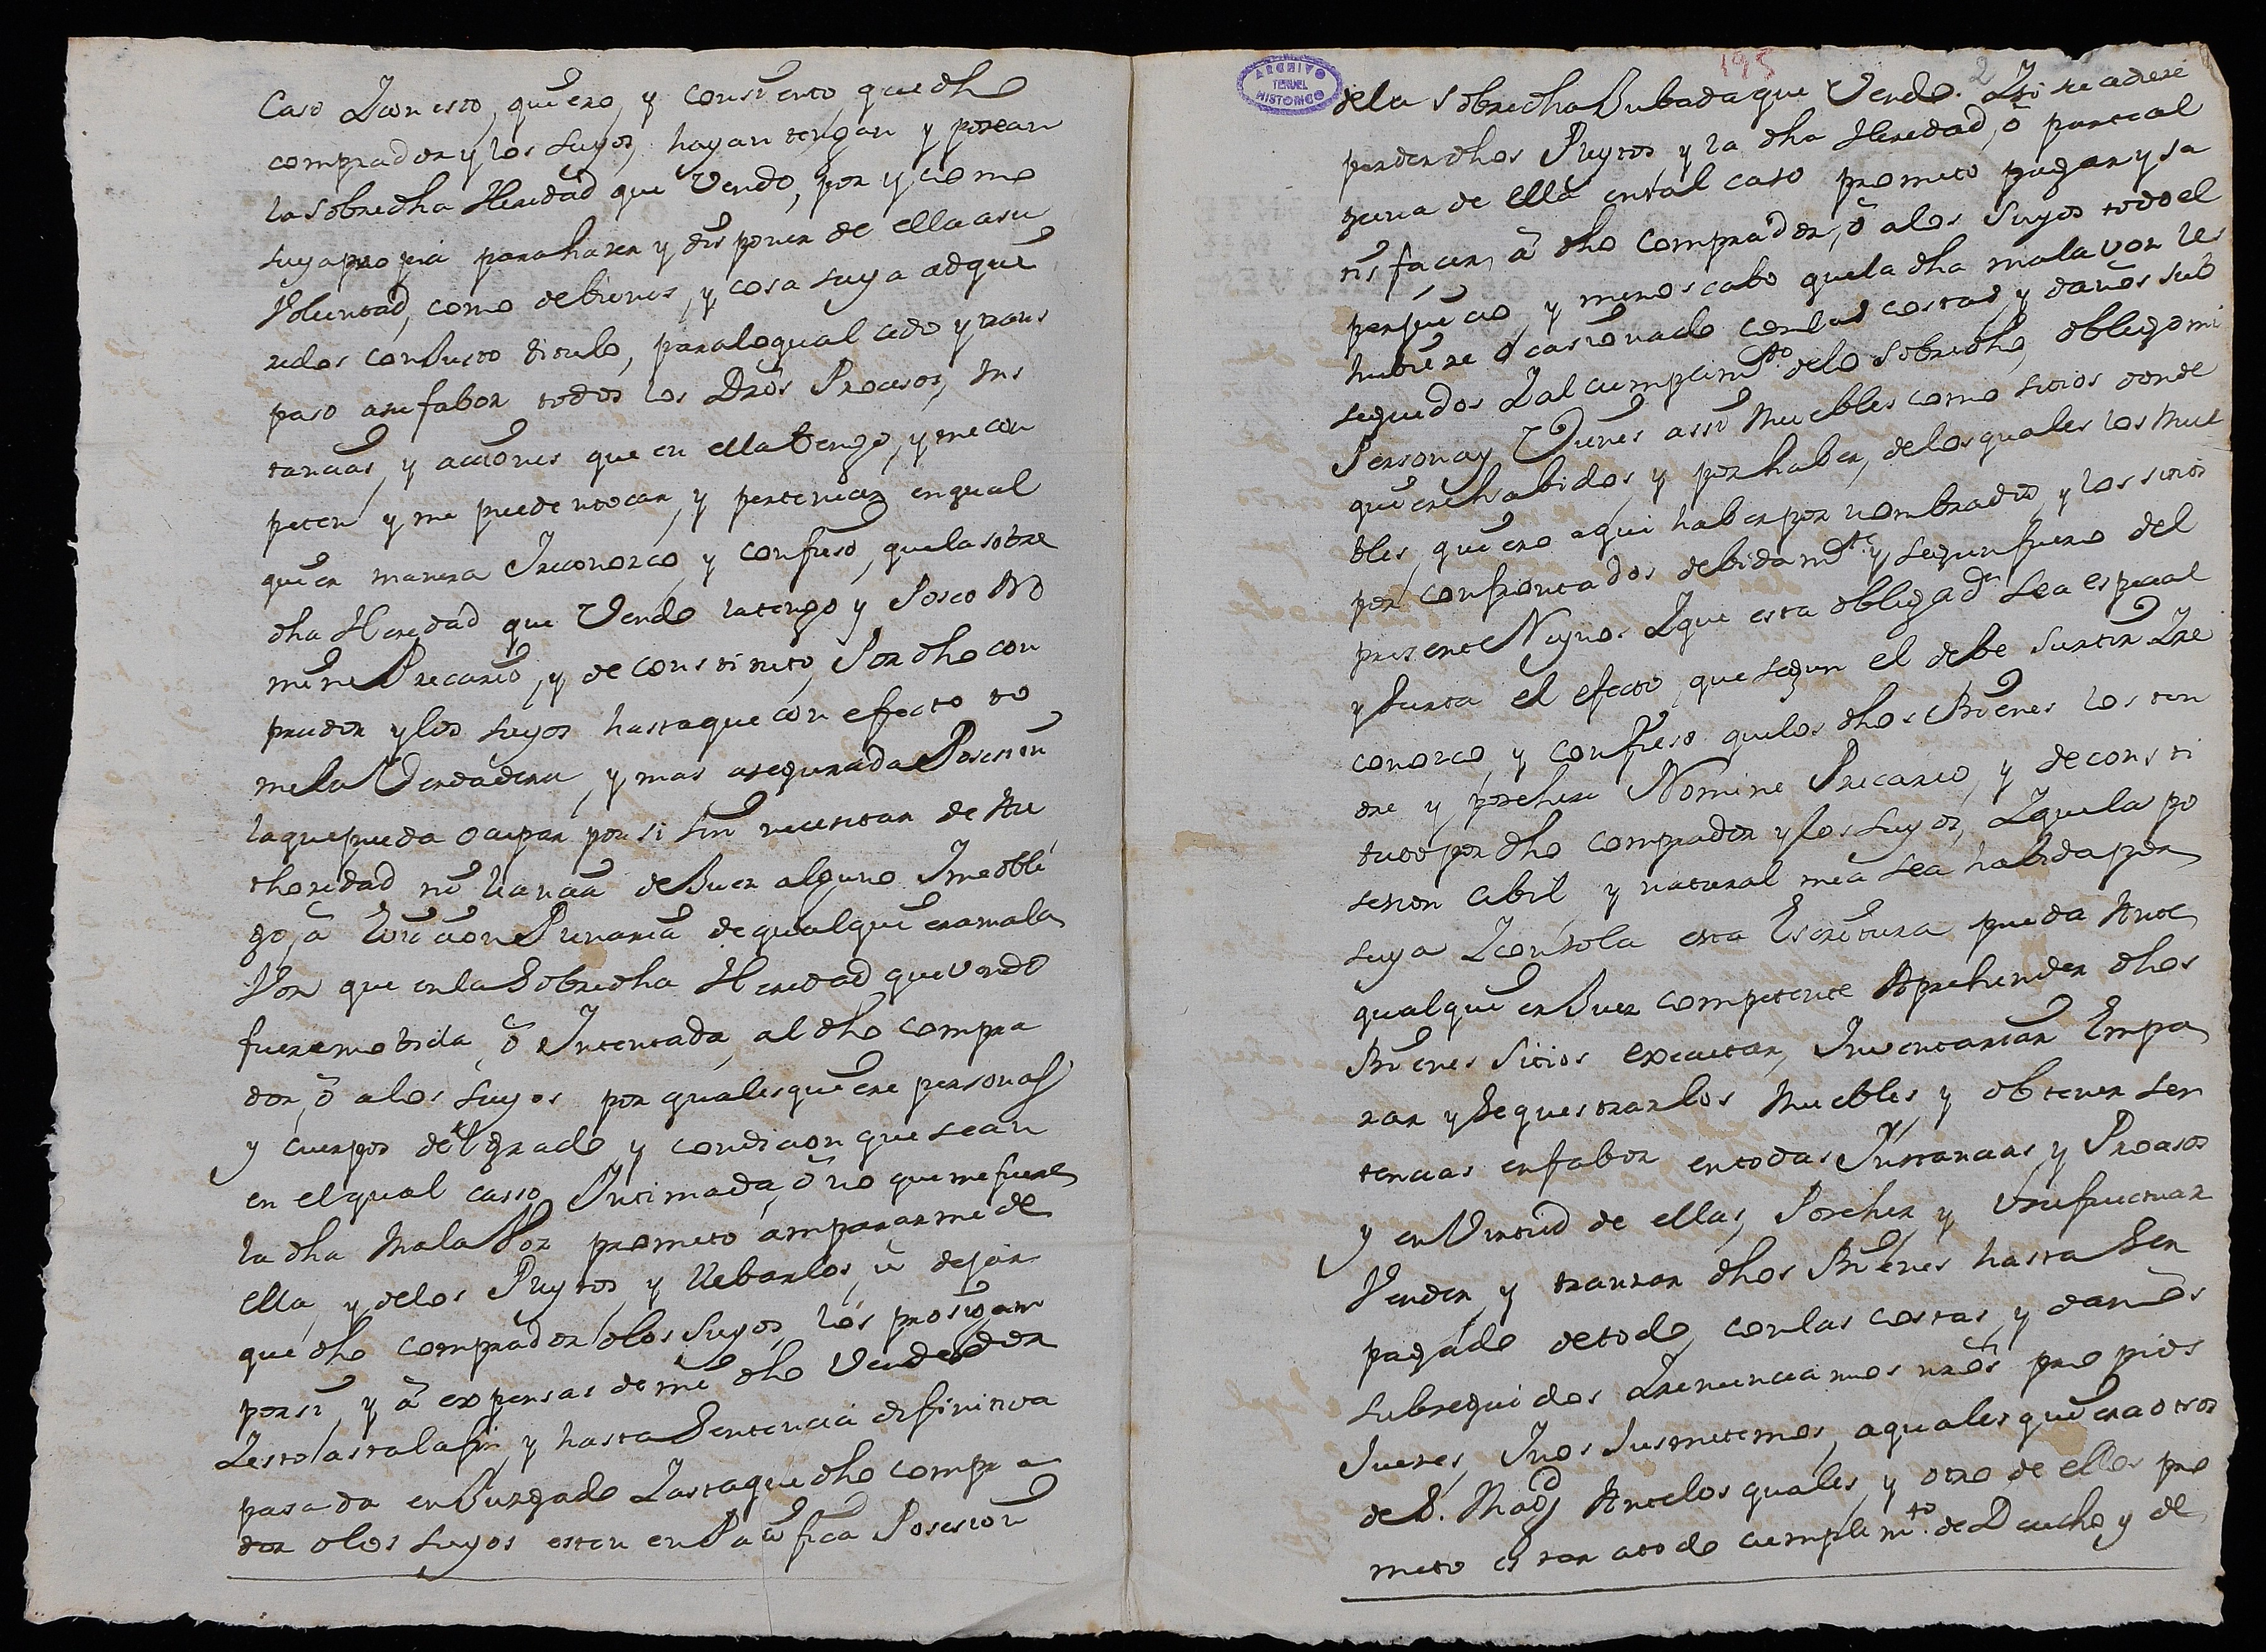 Caso Y con esto, quiero, y consiento, que dho
comprador y los suyos, hayan tengan y posean
la sobredha Heredad que Vendo, por y como
suya propia para hazer y disponer de ella a su
Voluntad, como de bienes, y cosa suya adqui
ridos con Justo titulo, para lo qual cedo y trans
paso a su fabor todos los Dros Procesos, Ins
tancias, y acciones que en ella tengo, y me con
peten y me pueden tocar, y pertenecer en qual
quier manera Y reconozco, y confieso, que la sobre
dha Heredad que Vendo la tengo y Poseo No
mine Precario, y de constituto, Por dho con
prador y los suyos hasta que con efecto to
me la Verdadera, y mas asegurada Posesion
la que pueda ocupar por si sin necesitar de Au
thoridad ni licencia de Juez alguno Y me obli
go, â Eviccion Plenaria de qualquiera mala
Voz que en la Sobredha Heredad que vendo
fuere mobida, ô Intentada, al dho compra
dor, ô a los suyos por qualesquiere personas
y cuerpos de grado y condicion que sean
en el qual casso, Intimada, ô no que me fuere
la dha Mala Voz prometo ampararme de
ella, y de los Pleytos, y llebarlos, û dejar
que dho comprador o los suyos los prosigan
por si, y â expensas de mi dho Vendedor
Y esto asta la fin, y hasta Sentencia difinitiva
pasada en Juzgado Y asta que dho compra
dor o los suyos esten en Pacifica Posesion
ARCHIVO
HISTORICO
TERUEL
195
2
de la sobredha Jubada que Vendo. Y si sucediere
perder dhos Pleytos y la dha Heredad, ô parte al
guna de ella en tal caso prometo pagar y sa
tisfacer, â dho Comprador, ô a los Suyos todo el
perjuicio, y menoscabo que la dha mala voz les
hubiere ocasionado con las costas, y daños sub
seguidos Y al cumplimto. de lo Sobredho, obligo mi
Persona y Vienes assi Muebles como sitios donde
quiere habidos, y por haber, de los quales los Mue
bles, quiero aqui haber por nombrados, y los sitios
por confrontados debidamte. y segun fuero del
presente Reyno. Y que esta obligaon sea especial
y surta el efecto, que segun el debe surtir Y re
conozco, y confieso que los dhos Bienes los ten
dre y posehere Nomine Precario, y de consti
tuto por dho comprador y los suyos, Y que la po
sesion cibil y natural mia sea habida por
suya Y con sola esta Escritura pueda Ante
qualquier Juez competente Aprehender dhos
Bienes Sitios executar, Inventariar Empa
rar y Sequestrar los Muebles, y obtener sen
tencias en fabor en todas Instancias, y Procesos
y en Virtud de ellas, Poseher, y Usufructuar
Vender, y tranzar dhos Bienes hasta Ser
pagado de todo, con las costas, y daños
subseguidos Y renunciamos nros propios
Jueces, Y nos susmetemos, a qualesquiera otros
de S. Magd Ante los quales, y otro de ellos pro
meto estar a todo cumplimto. de Drecho, y de